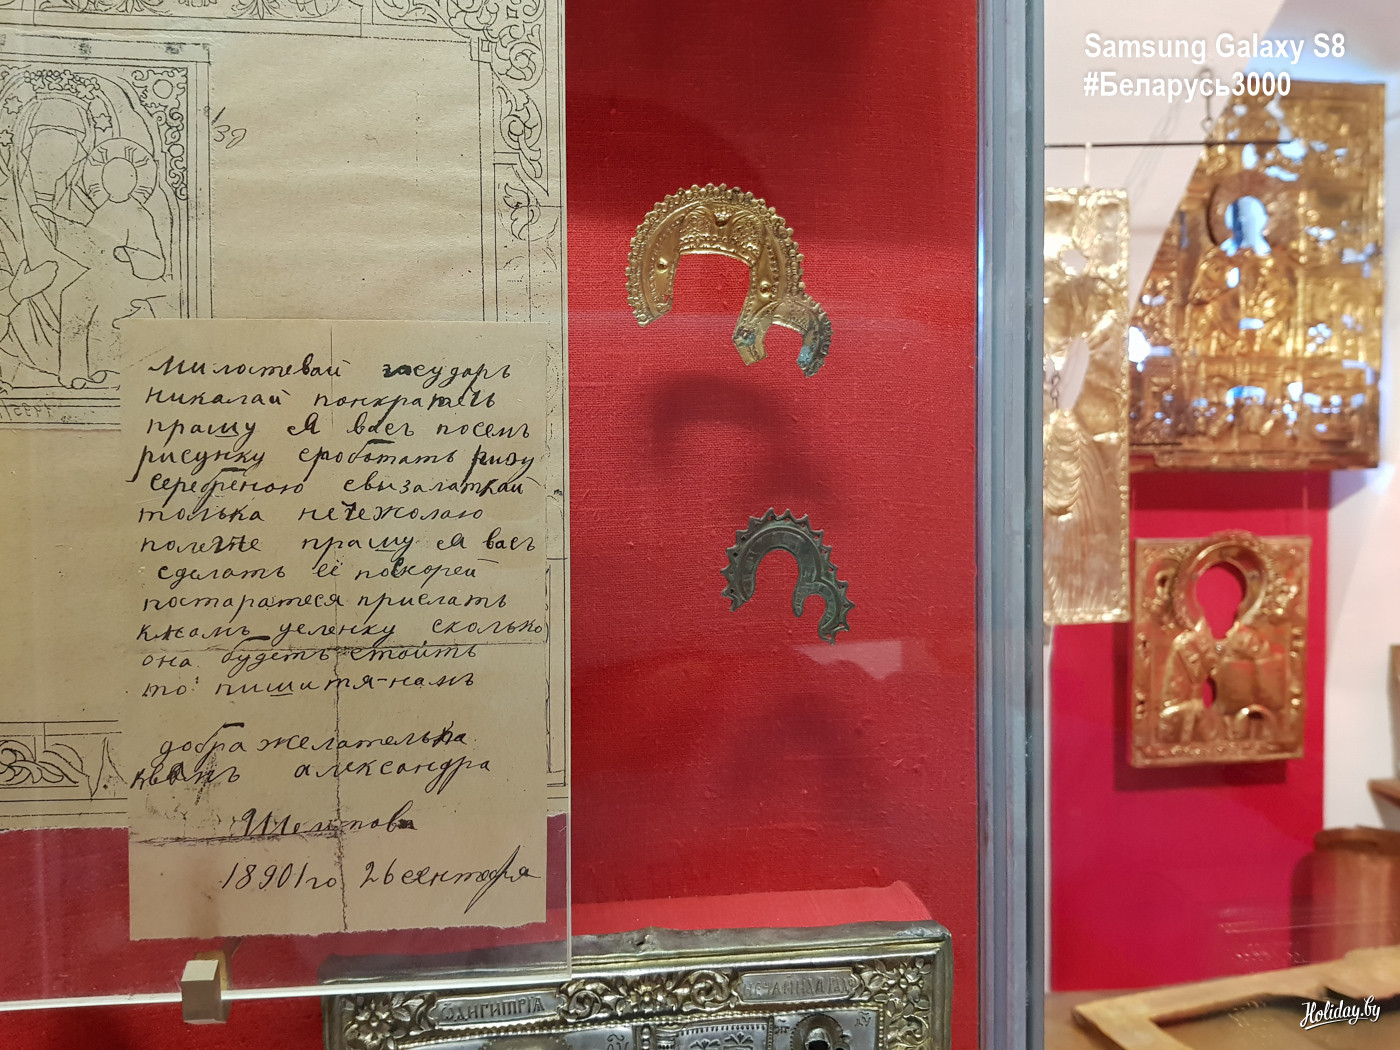 Samsung Galaxy S8
#Беларусь3000
39
Милостевай государь
Никалай понкратвь
прашу Я васъ посемъ
рисунку сроботать ризу
серебреною свызалаткай
толька нечежолаю
полегче прашу Я васъ
сделать её поскорей
постаратеся прислать
кнамъ уеленку сколько
она будетъ стоить
то пишитя-намъ
добра желателька
квамъ александра
Шелпова
1890го 26 сентобря
ѠДИГИТРІѦ
Holiday.by